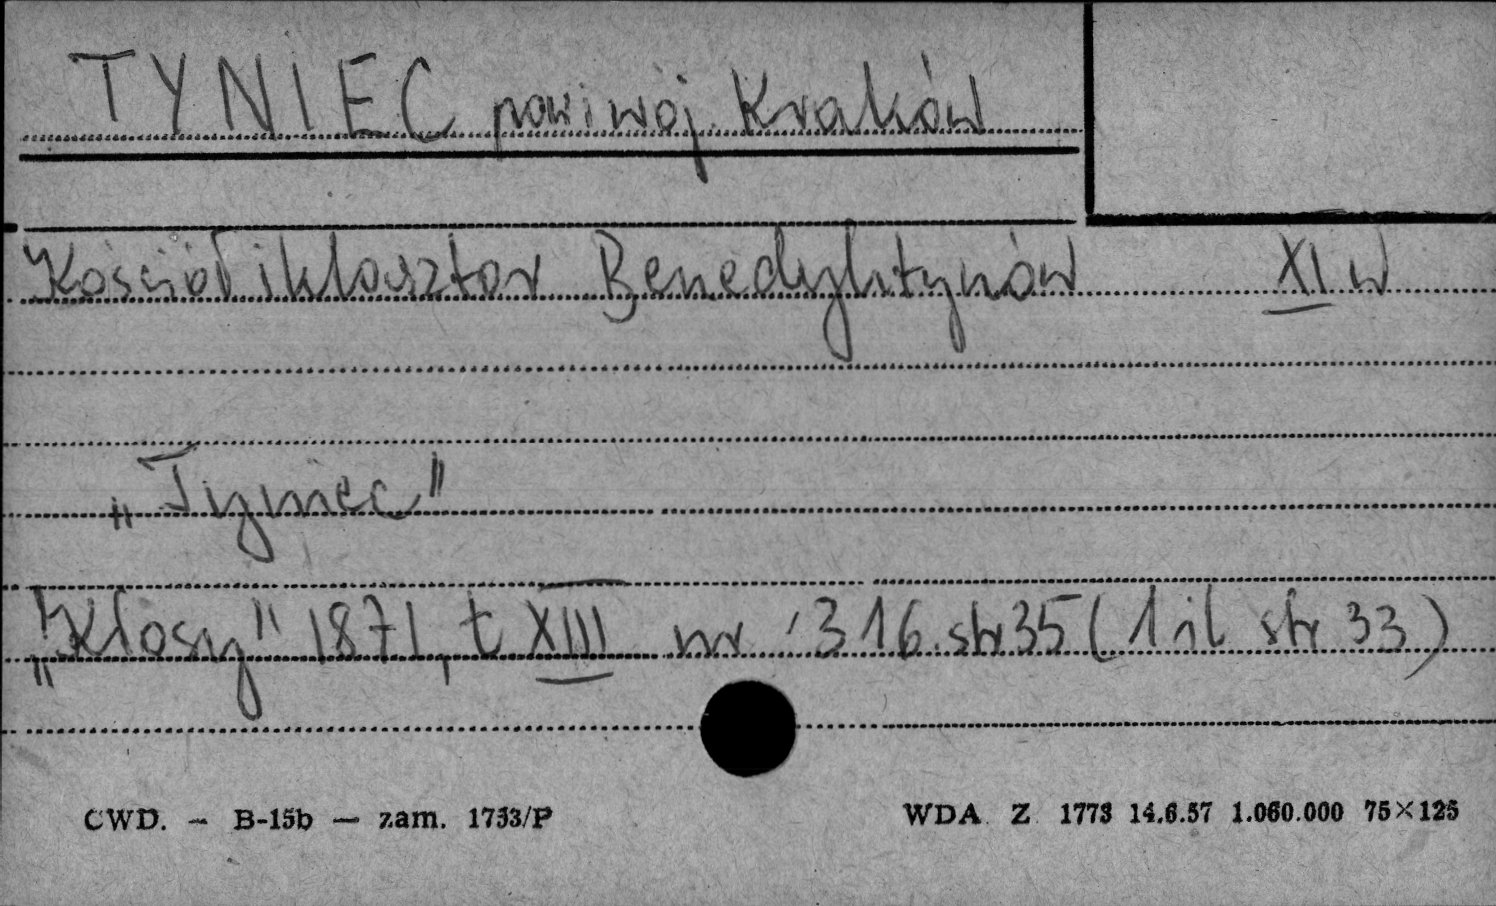 TYNIEC pow i woj. Kraków
Kościół i klasztor Benedyktynów XI w
„Tyniec"
„Kłosy" 1871, t XIII nr 316. str 35 (1 il str 33)
CWD. — B-15b — zam. 1753/P WDA Z 1773 14.6.57 1.060.000 75×125